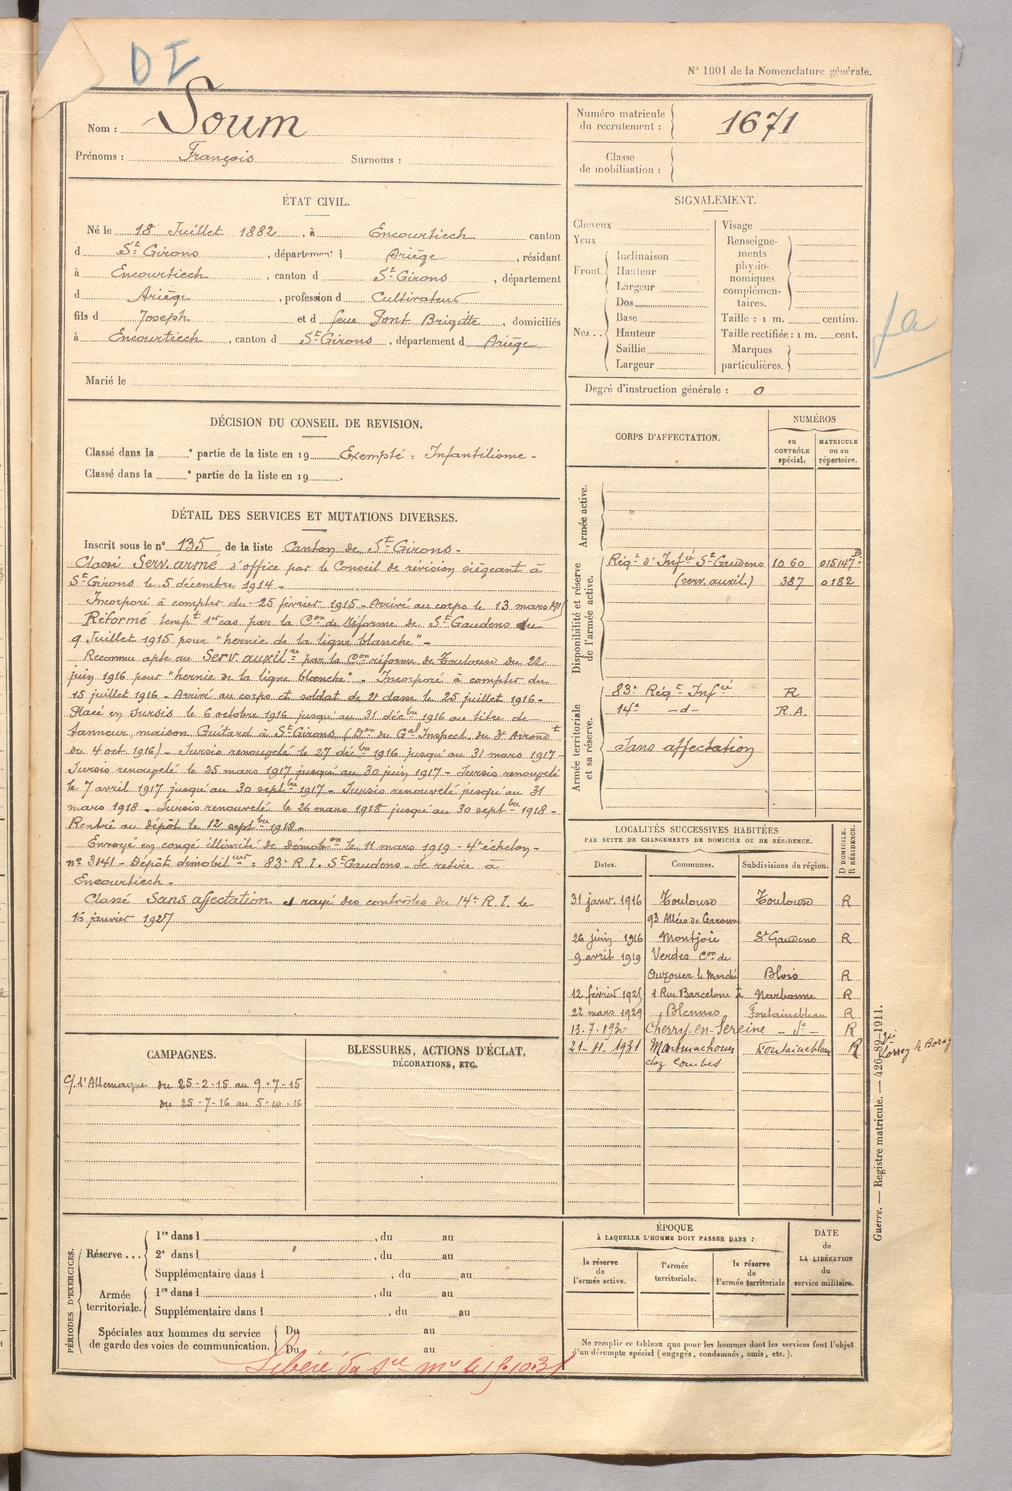 D I
N° 1001 de la Nomenclature générale.
Nom : Soum
Prénoms : François Surnoms :
Numéro matricule du recrutement : 1671
Classe de mobilisation :
ÉTAT CIVIL.
Né le 18 Juillet 1882, à Encourtiech canton
d St Girons, département d Ariège, résidant
à Encourtiech, canton d St Girons, département
d Ariège, profession d Cultivateur
fils d Joseph et d feue Pont Brigitte, domiciliés
à Encourtiech, canton d St Girons, département d Ariège
Marié le
SIGNALEMENT.
Cheveux
Yeux
Front. Inclinaison
Hauteur
Largeur
Nez... Dos
Base
Hauteur
Saillie
Largeur
Visage
Renseigne-
ments
physio-
nomiques
complémen-
taires.
Taille : 1 m. centim.
Taille rectifiée : 1 m. cent.
Marques
particulières.
Degré d'instruction générale : 0
DÉCISION DU CONSEIL DE REVISION.
Classé dans la e partie de la liste en 19 Exempté : Infantilisme -
Classé dans la e partie de la liste en 19 .
DÉTAIL DES SERVICES ET MUTATIONS DIVERSES.
Inscrit sous le n° 135 de la liste Canton de St Girons -
Classé Serv. armé d'office par le Conseil de révision siégeant à
St Girons le 5 décembre 1914 -
Incorporé à compter du 25 février 1915 - Arrivé au corps le 13 mars 1915
Réformé tempt 1er cas par la Con de Réforme de St Gaudens du
9 Juillet 1915 pour "hernie de la ligne blanche" -
Reconnu apte au Serv. auxilre par la Con réforme de Toulouse du 22
juin 1916 pour "hernie de la ligne blanche" - Incorporé à compter du
15 juillet 1916 - Arrivé au corps et soldat de 2e classe le 25 juillet 1916 -
Placé en Sursis le 6 octobre 1916 jusqu'au 31 décbre 1916 au titre de
tanneur, maison Guitard à St Girons (Don du Gal Inspect. du 3e Arrondt
du 4 oct 1916) - Sursis renouvelé le 27 décbre 1916 jusqu'au 31 mars 1917 -
Sursis renouvelé le 25 mars 1917 jusqu'au 30 juin 1917 - Sursis renouvelé
le 7 avril 1917 jusqu'au 30 septbre 1917 - Sursis renouvelé jusqu'au 31
mars 1918 - Sursis renouvelé le 26 mars 1918 jusqu'au 30 septbre 1918 -
Rentré au dépôt le 12 septbre 1918 -
Envoyé en congé illimité de démobon le 11 mars 1919 - 4e échelon -
n° 3141 - Dépôt démobilteur : 83e R.I. St Gaudens - Se retire à
Encourtiech -
Classé Sans affectation et rayé des contrôles du 14e R.I. le
16 janvier 1927
CORPS D'AFFECTATION.
NUMÉROS
au CONTRÔLE spécial.
MATRICULE ou au répertoire.
Armée active.
Disponibilité et réserve de l'armée active.
Régt d'Infie St Gaudens 1060 015147
(serv. auxil.) 387 0182
Armée territoriale et sa réserve.
83e Régt Infie R
14e -d- R.A.
Sans affectation
LOCALITÉS SUCCESSIVES HABITÉES
PAR SUITE DE CHANGEMENTS DE DOMICILE OU DE RÉSIDENCE.
Dates. Communes. Subdivisions de région. D DOMICILE. R RÉSIDENCE.
31 janv. 1916 Toulouse Toulouse R
93 Allées de Garonne
26 juin 1916 Montjoie St Gaudens R
9 avril 1919 Verdes Con de
Ouzouer le Marché Blois R
12 février 1925 1 Rue Barcelone à Narbonne R
22 mars 1929 Blennes Fontainebleau R
13.7.1930 Cherry-en-Sereine - do - R
21-11-1931 Fontainebleau R
chez Combes
CAMPAGNES.
C/ l'Allemagne du 25-2-15 au 9-7-15
du 25-7-16 au 5-10-16
BLESSURES, ACTIONS D'ÉCLAT.
DÉCORATIONS, ETC.
PÉRIODES D'EXERCICES.
Réserve... 1re dans l , du au
2e dans l , du au
Supplémentaire dans l , du au
Armée territoriale. 1re dans l , du au
Supplémentaire dans l , du au
Spéciales aux hommes du service
de garde des voies de communication. Du au
Du au
Libéré du sce mre le 15.10.31
ÉPOQUE
À LAQUELLE L'HOMME DOIT PASSER DANS :
la réserve de l'armée active.
l'armée territoriale.
la réserve de l'armée territoriale
DATE de LA LIBÉRATION du service militaire.
Ne remplir ce tableau que pour les hommes dont les services font l'objet
d'un décompte spécial (engagés, condamnés, omis, etc.).
Guerre. — Registre matricule. — 426-89-1911.